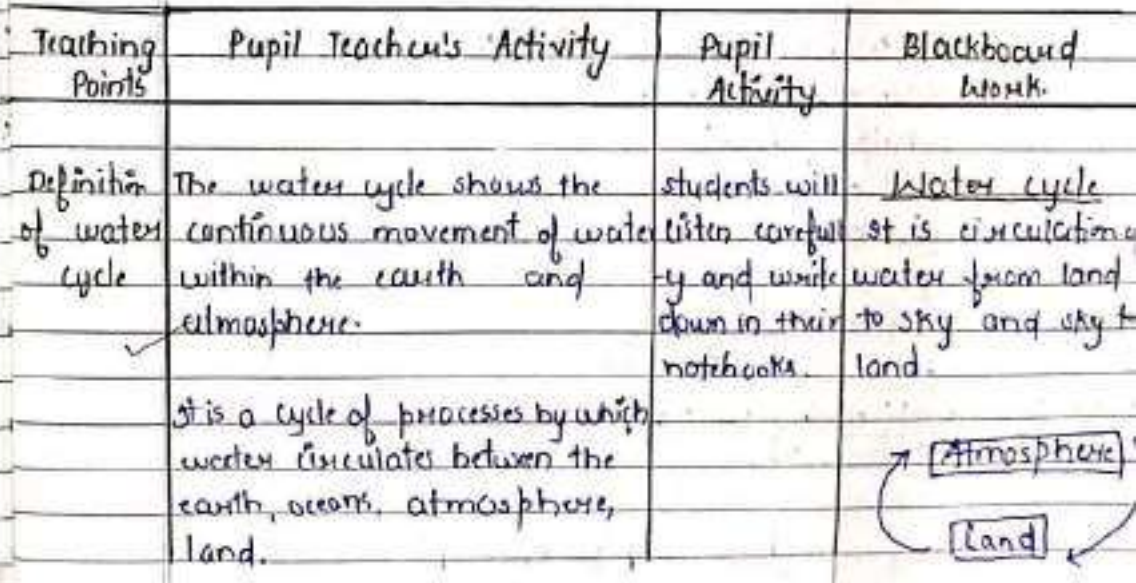 Teaching Points
Pupil Teacher's Activity
Pupil Activity
Blackboard Work.
Definition
of water
cycle
The water cycle shows the
continuous movement of water
within the earth and
atmosphere.
It is a cycle of processes by which
water circulates between the
earth, oceans, atmosphere,
land.
students will
listen carefull
-y and write
down in their
notebooks.
Water cycle
It is circulation of
water from land
to sky and sky to
land.
Atmosphere
Land